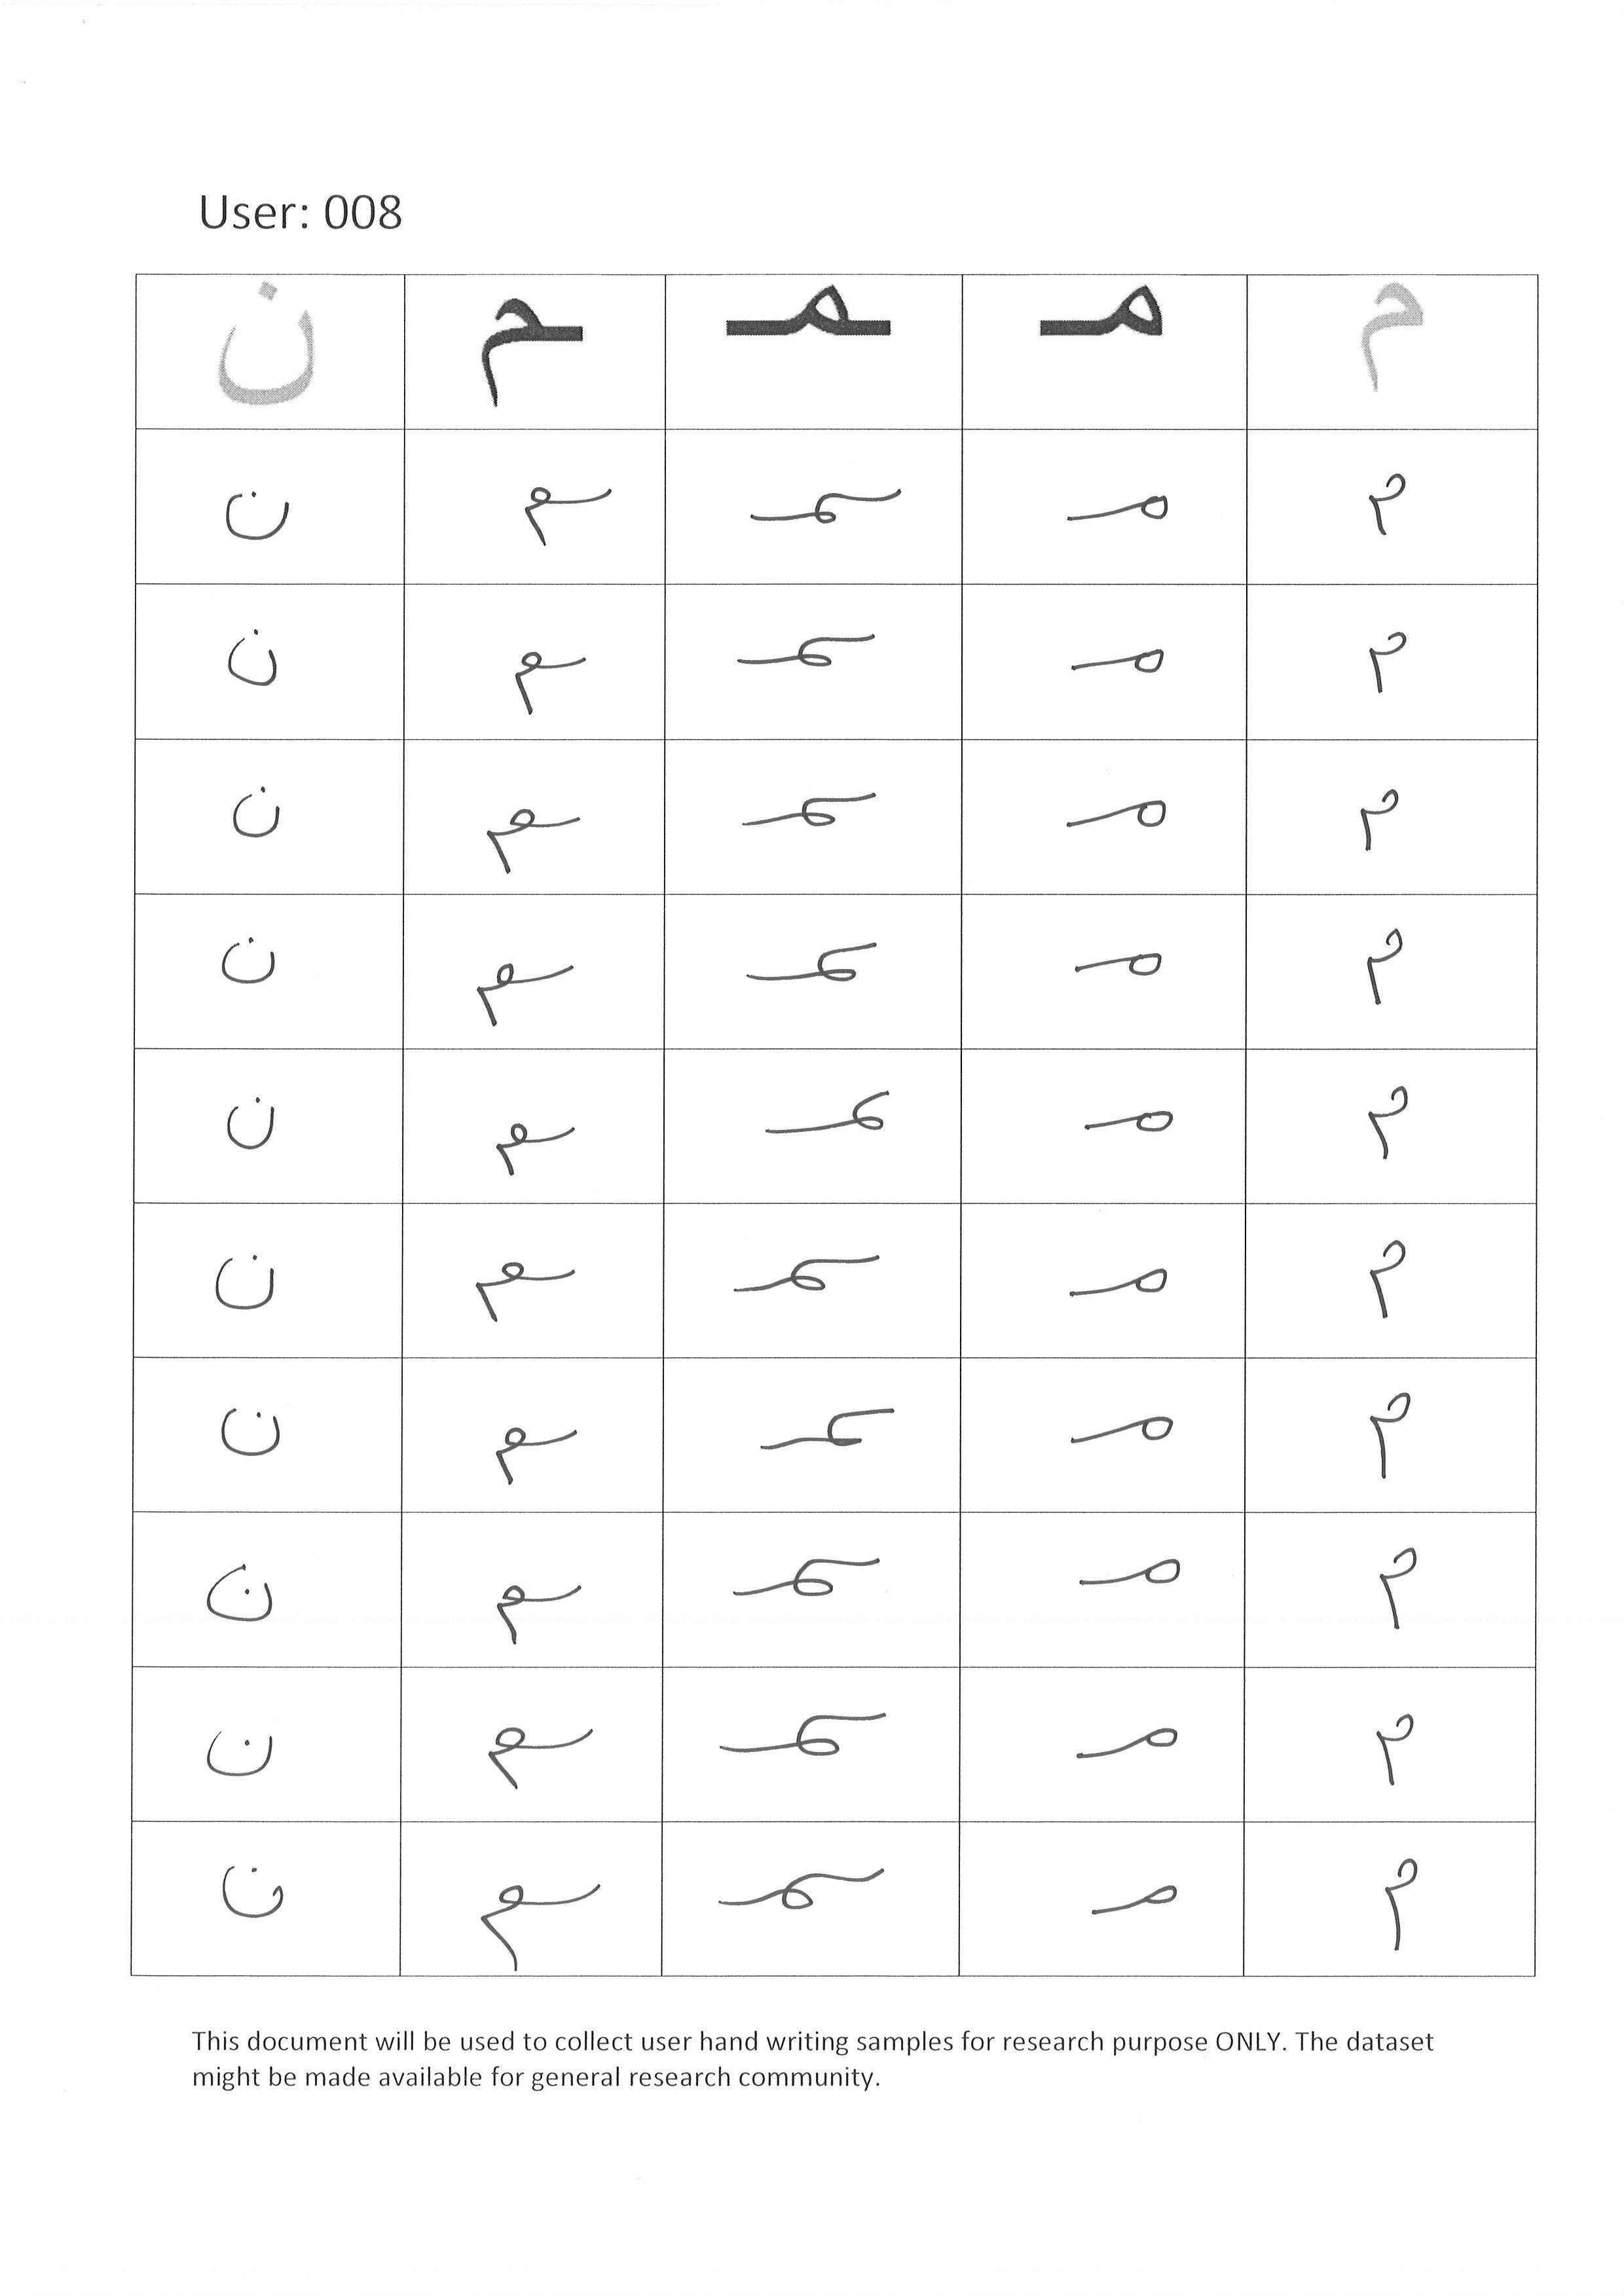 User: 008
م مـ ـمـ ـم ن
م مـ ـمـ ـم ن
م مـ ـمـ ـم ن
م مـ ـمـ ـم ن
م مـ ـمـ ـم ن
م مـ ـمـ ـم ن
م مـ ـمـ ـم ن
م مـ ـمـ ـم ن
م مـ ـمـ ـم ن
م مـ ـمـ ـم ن
م مـ ـمـ ـم ن
This document will be used to collect user hand writing samples for research purpose ONLY. The dataset
might be made available for general research community.